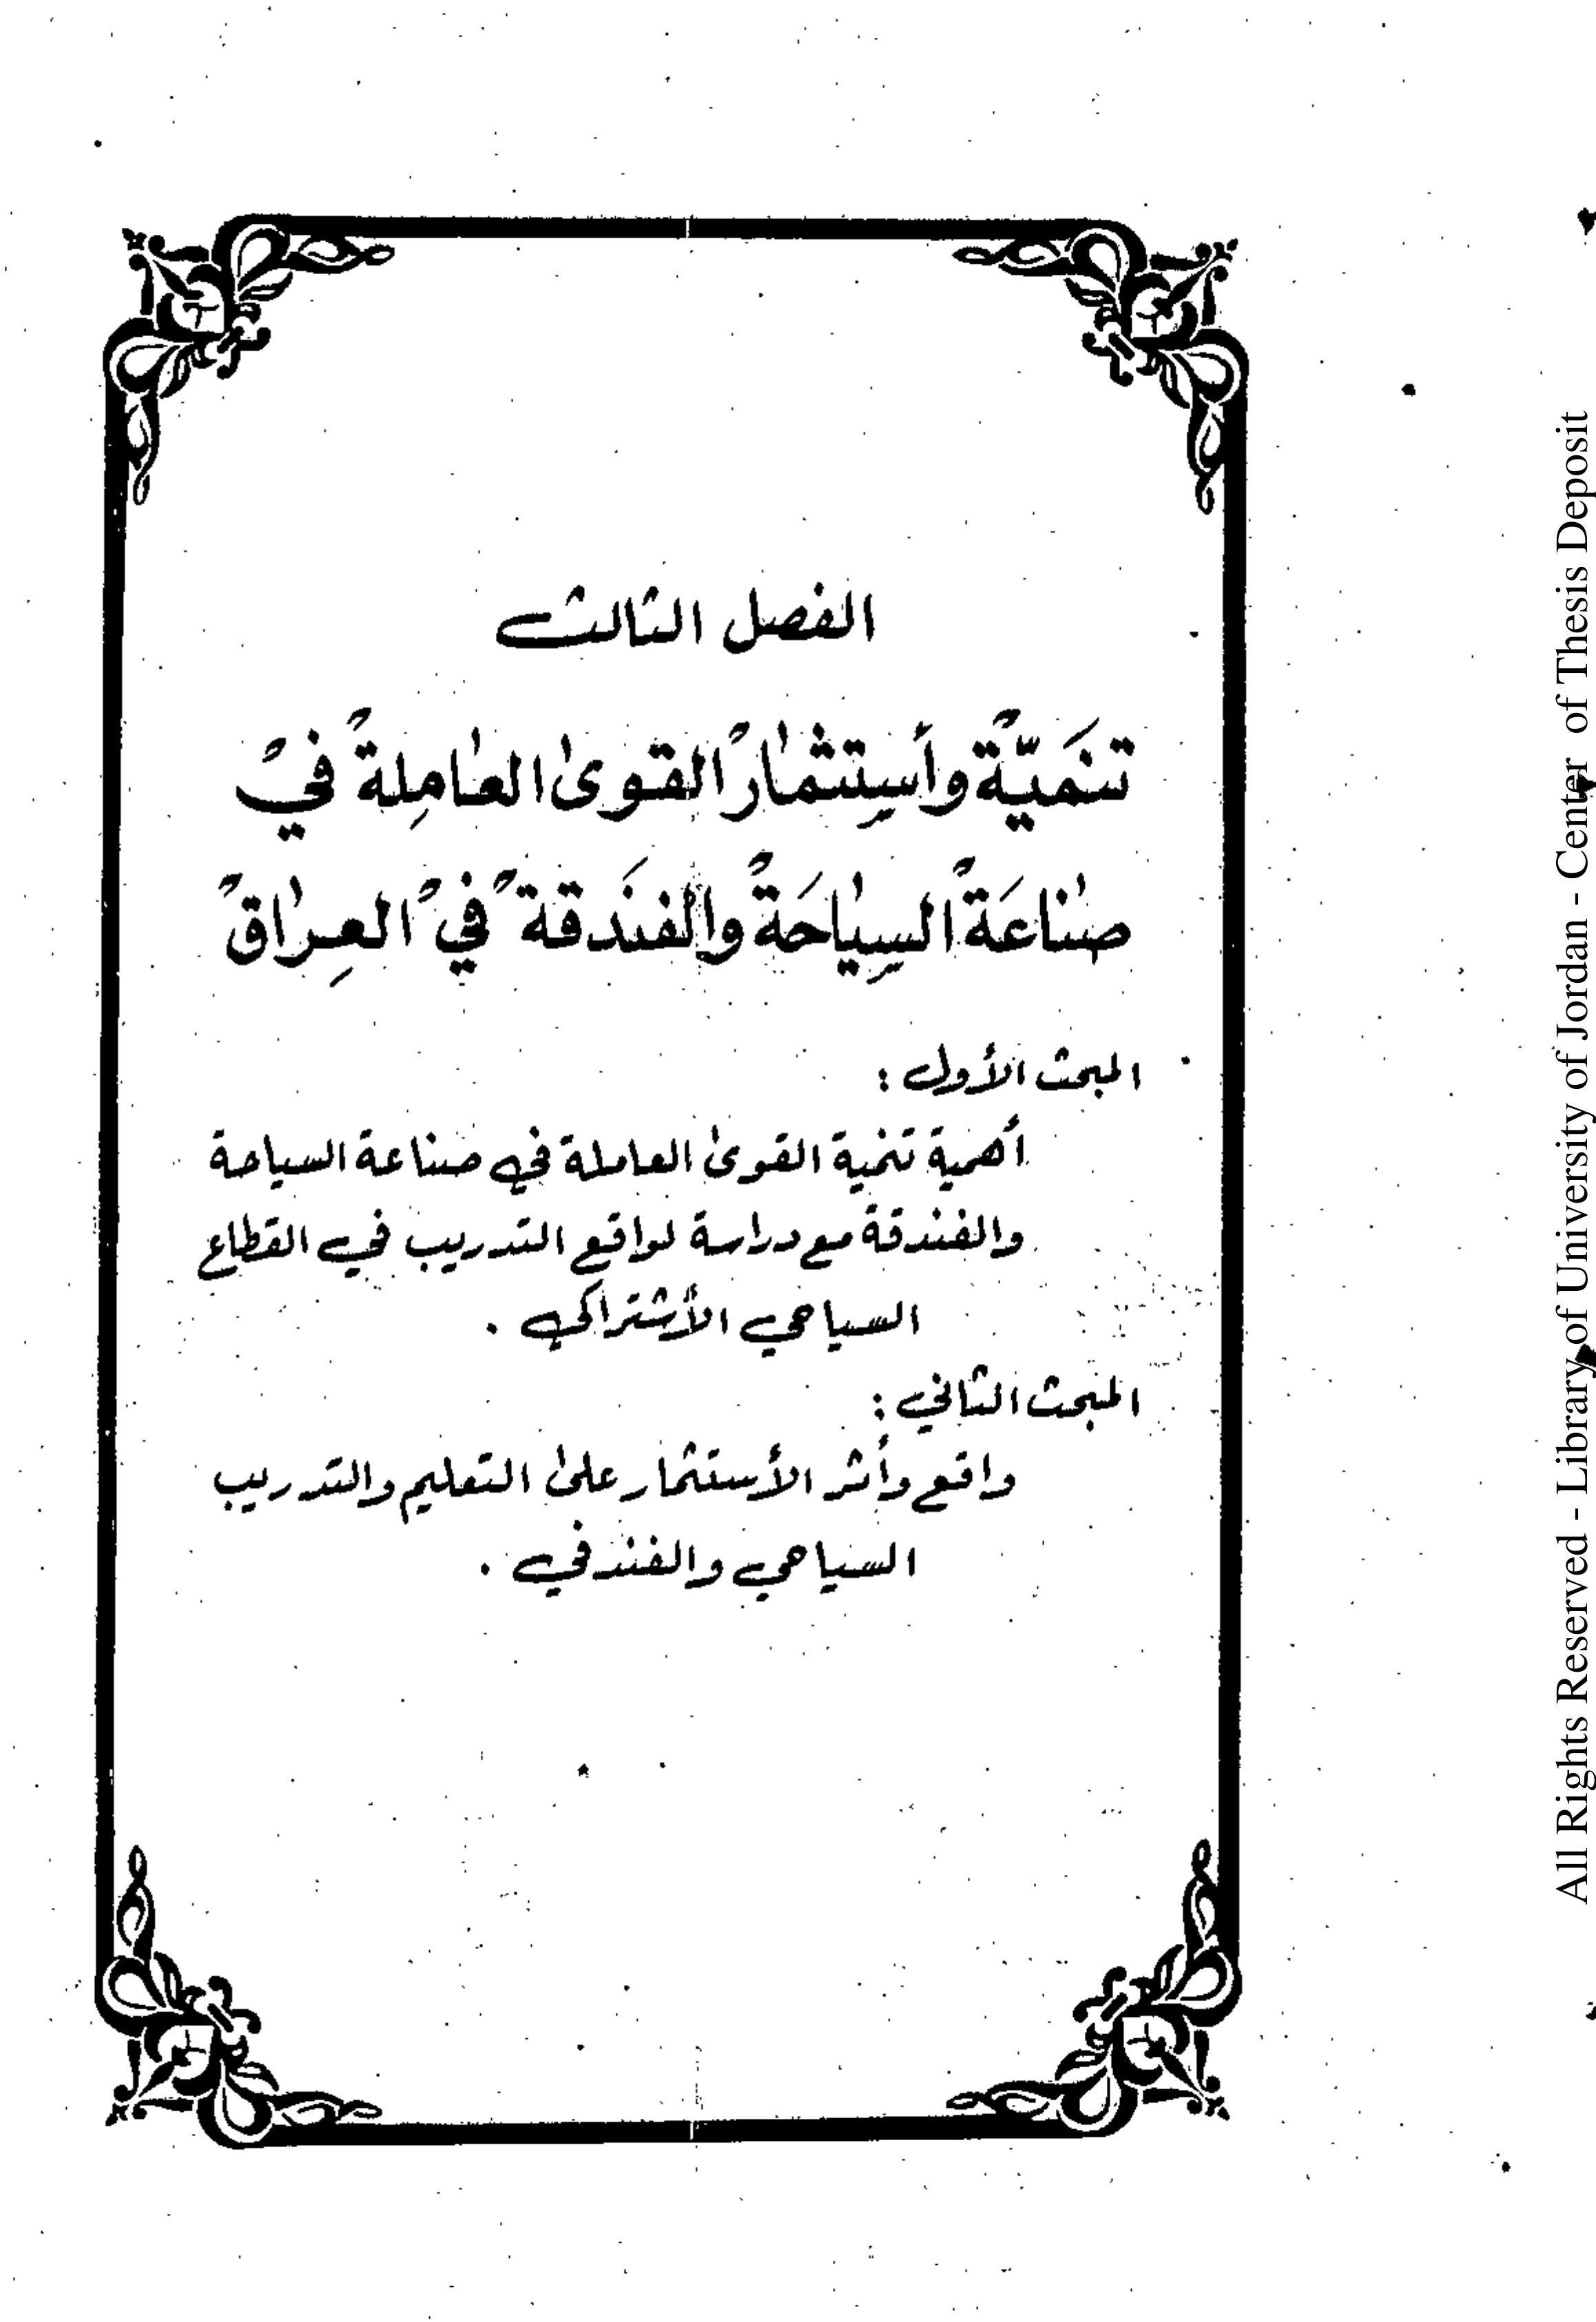 الفصل الثالث
تنَميّة وأستِثمار القوى العامِلة في
صناعَة السِياحَة والفنَدقة في العِراق
المبحث الأول :
أهمية تنمية القوى العاملة في صناعة السياحة
والفندقة مع دراسة لواقع التدريب في القطاع
السياحي الأشتراكي .
المبحث الثاني :
واقع وأثر الأستثمار على التعليم والتدريب
السياحي والفندقي .
All Rights Reserved - Library of University of Jordan - Center of Thesis Deposit